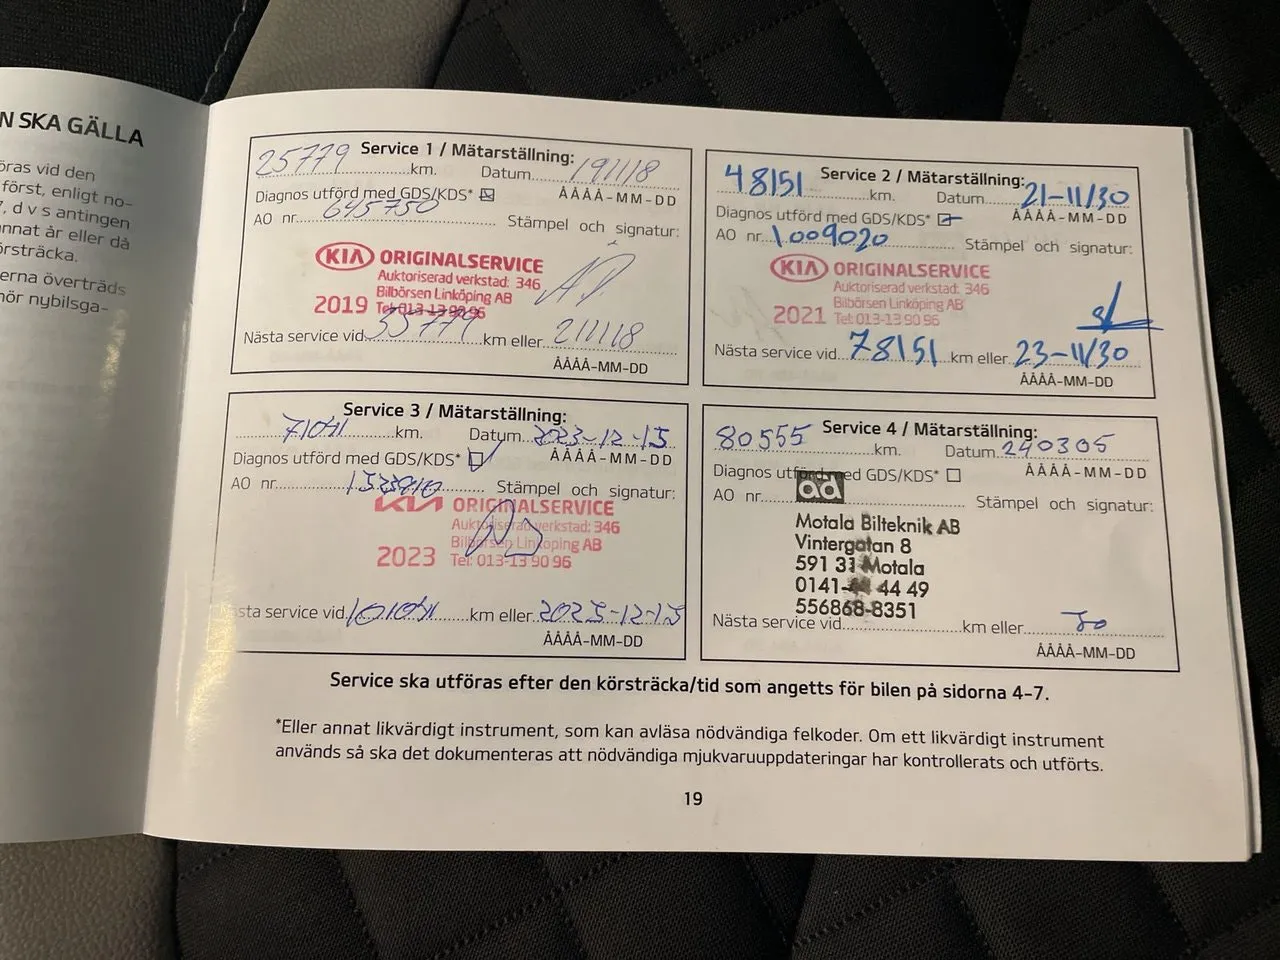 N SKA GÄLLA
öras vid den
först, enligt no-
7, d v s antingen
nnat år eller då
örsträcka.
erna överträds
nör nybilsga-
Service 1 / Mätarställning:
25779 km. Datum 191118
Diagnos utförd med GDS/KDS* ÅÅÅÅ-MM-DD
AO nr. 645750 Stämpel och signatur:
KIA ORIGINALSERVICE
Auktoriserad verkstad: 346
Bilbörsen Linköping AB
2019 Tel: 013-13 90 96
Nästa service vid 55779 km eller 211118
ÅÅÅÅ-MM-DD
Service 2 / Mätarställning:
48151 km. Datum 21-11/30
Diagnos utförd med GDS/KDS* ÅÅÅÅ-MM-DD
AO nr. 1009020 Stämpel och signatur:
KIA ORIGINALSERVICE
Auktoriserad verkstad: 346
Bilbörsen Linköping AB
2021 Tel: 013-13 90 96
Nästa service vid 78151 km eller 23-11/30
ÅÅÅÅ-MM-DD
Service 3 / Mätarställning:
71041 km. Datum 2023-12-15
Diagnos utförd med GDS/KDS* ÅÅÅÅ-MM-DD
AO nr. Stämpel och signatur:
KIA ORIGINALSERVICE
Auktoriserad verkstad: 346
Bilbörsen Linköping AB
2023 Tel: 013-13 90 96
sta service vid 101041 km eller 2025-12-15
ÅÅÅÅ-MM-DD
Service 4 / Mätarställning:
80555 km. Datum 240305
Diagnos utförd med GDS/KDS* ÅÅÅÅ-MM-DD
AO nr. Stämpel och signatur:
ad
Motala Bilteknik AB
Vintergatan 8
591 31 Motala
0141- 44 49
556868-8351
Nästa service vid km eller
ÅÅÅÅ-MM-DD
Service ska utföras efter den körsträcka/tid som angetts för bilen på sidorna 4-7.
*Eller annat likvärdigt instrument, som kan avläsa nödvändiga felkoder. Om ett likvärdigt instrument
används så ska det dokumenteras att nödvändiga mjukvaruuppdateringar har kontrollerats och utförts.
19